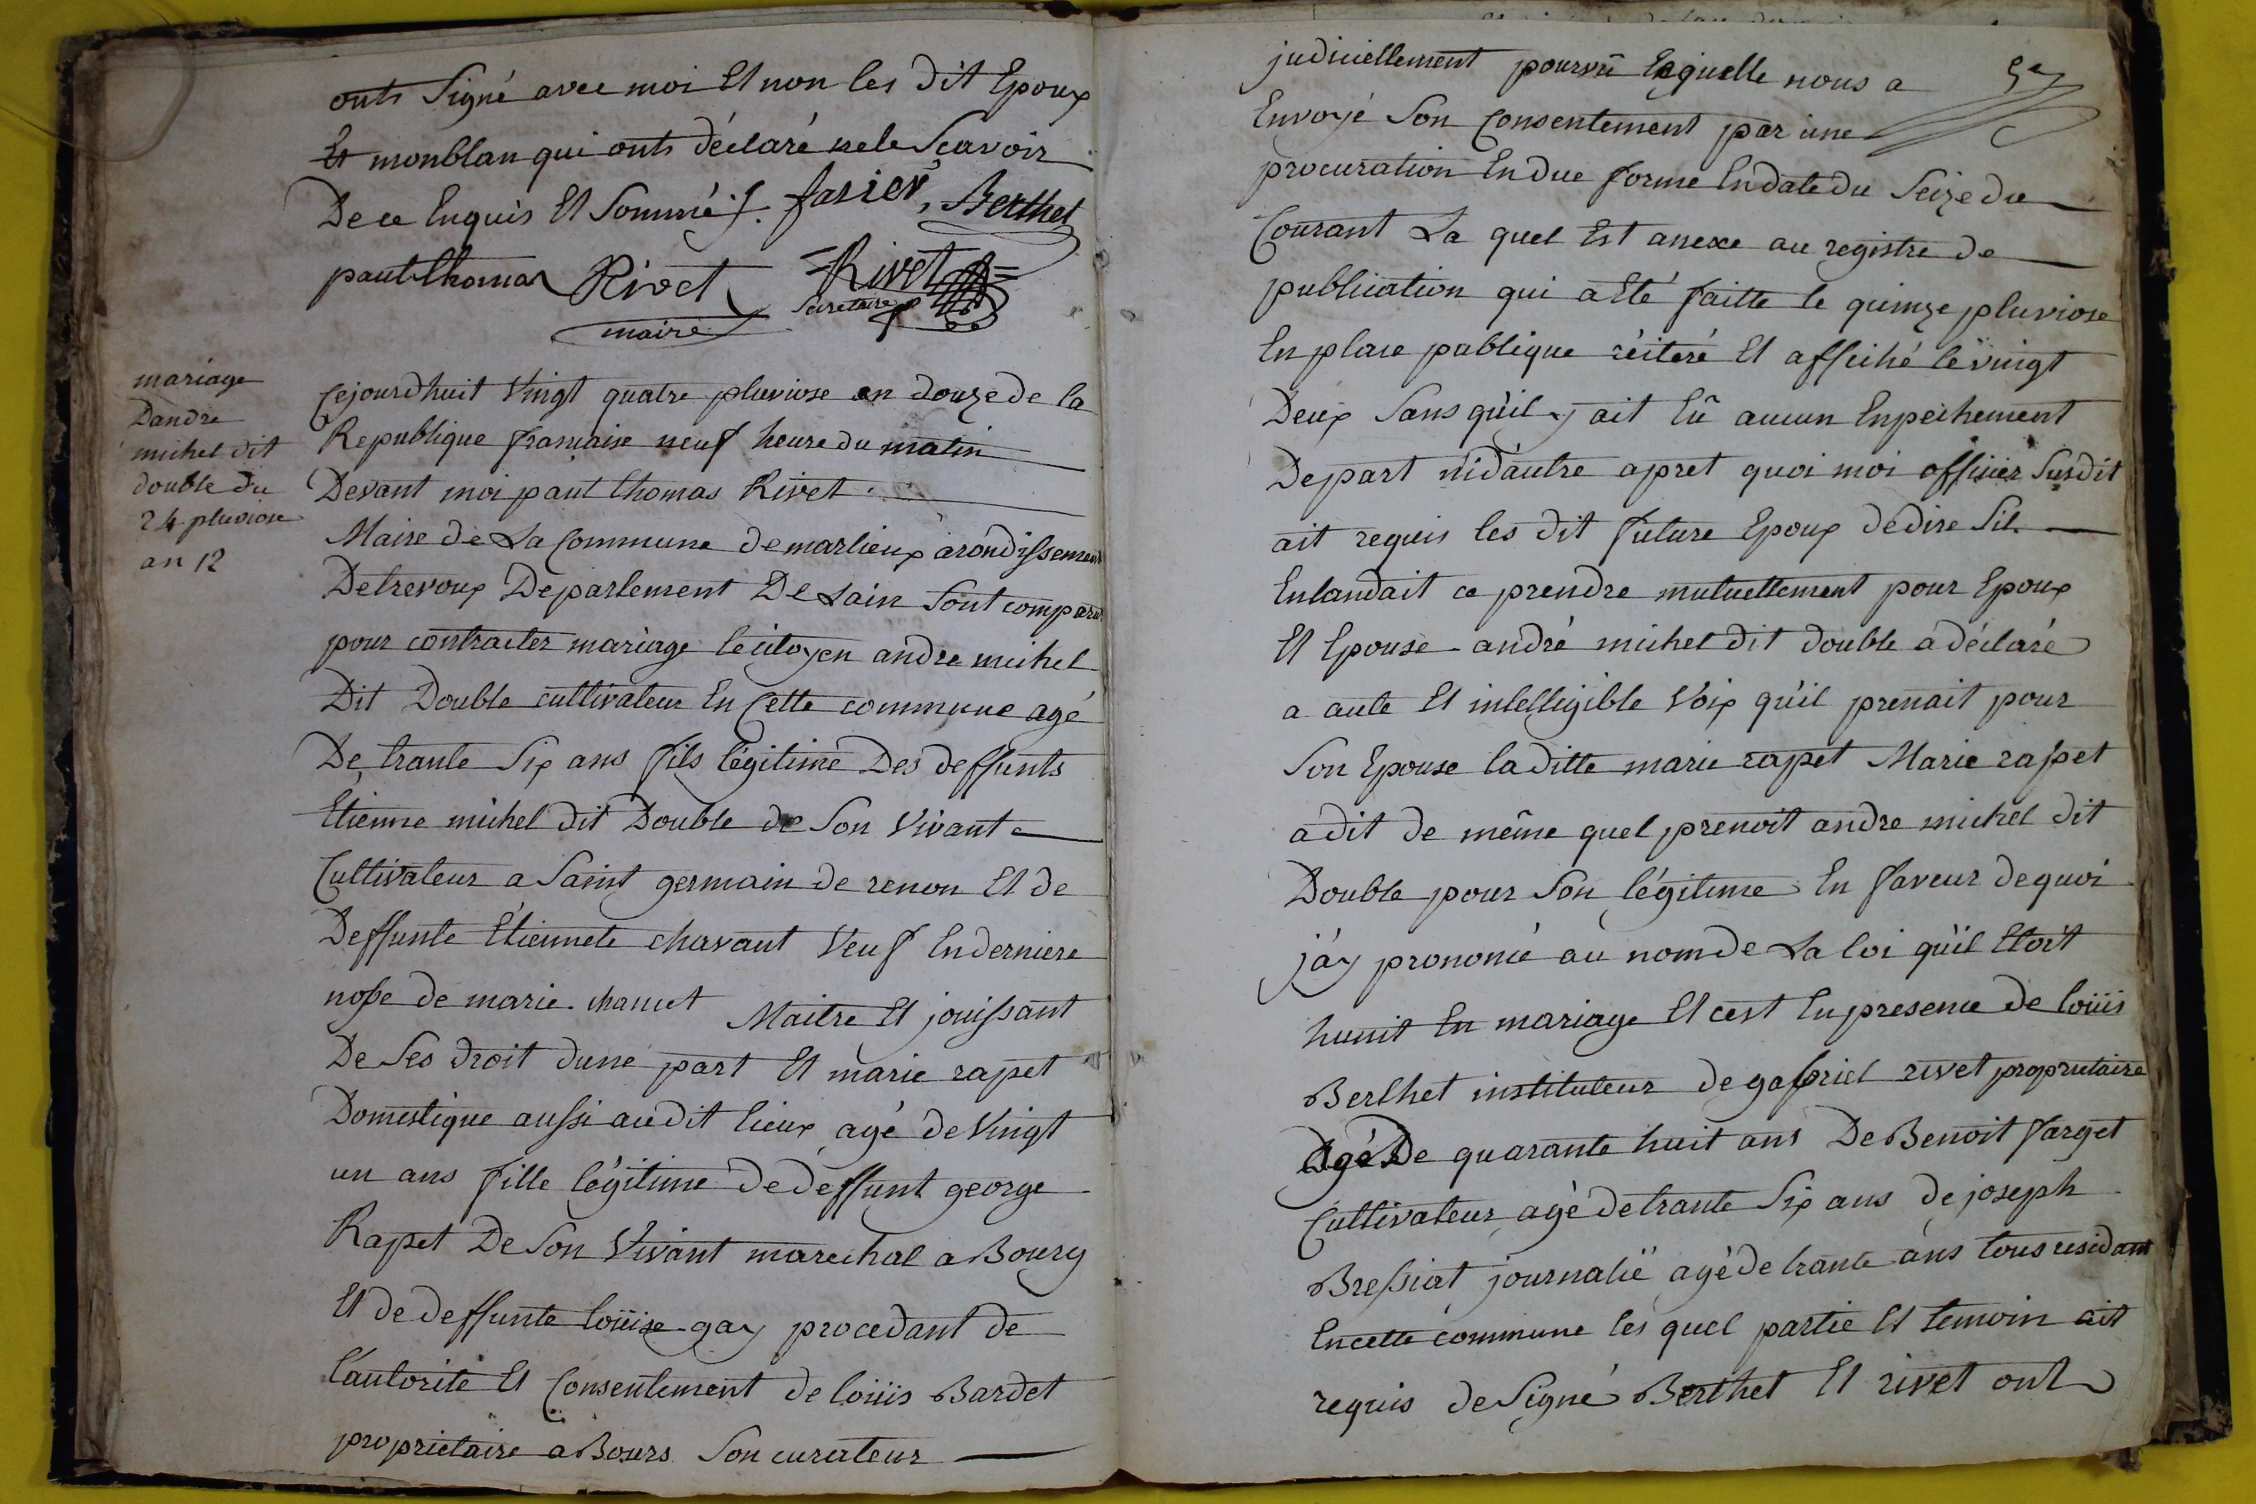 onts Signé avec moi Et non les dit Epoux
Et monblan qui onts déclaré nele Scavoir
De ce Enquis Et Sommé ./. farier, Berthet
paul thomas Rivet =Rivet=
maire Secretaire
mariage
Dandre
michel dit
double du
24 pluviose
an 12
Cejourdhuit Vingt quatre pluviose an douze de la
Republique française neuf heure du matin
Devant moi paul thomas Rivet
Maire de La Commune de marlieux arondissement
Detrevoux Departement De Lain Sont comparu
pour contracter mariage le citoyen andre michel
Dit Double cultivateur En Cette commune agé
De trante Six ans fils légitime Des deffunts
Etienne michel dit Double de Son Vivant
Cultivateur a Saint germain de renon Et de
Deffunte Étiennete chavant Veuf Enderniere
nosse de marie chanut Maitre Et jouissant
De Ses droit dune part Et marie rapet
Domestique aussi audit lieux agé de Vingt
un ans fille légitime de deffunt george
Rapet De Son Vivant marechal a Bourg
Et de deffunte loüise gay procedant de
l'autorité Et Consentement de loüis Bardet
proprietaire a Bourg Son curateur
judiciellement pourvû laquelle nous a
Envoyé Son Consentement par une
procuration Endue forme Endate du Seize du
Courant La quel Est anexe au registre de
publication qui a Eté faitte le quinze pluviose
En place publique réiteré Et affiché le vingt
Deux Sans qu'il y ait Eû aucun Enpechement
Depart nid'autre apret quoi moi officier Susdit
ait requis les dit future Epoux dédire Sil
Entandait ce prendre mutuellement pour Epoux
Et Epouse andré michel dit double a déclaré
a aute Et intelligible Voix qu'il prenait pour
Son Epouse laditte marie rapet Marie rapet
a dit de même quel prenoit andre michel dit
Double pour Son légitime En faveur dequoi
j'ay prononcé au nom de La loi qu'il Etoit
hunit En mariage Et cest Enpresence de loüis
Berthet instituteur de gabriel rivet proprietaire
Agé De quarante huit ans De Benoit farget
Cultivateur agé detrante Six ans de joseph
Bressiat journalié agé de trante ans tous residant
Encette commune les quel partie Et temoin ait
requis de Signé Berthet Et rivet ont